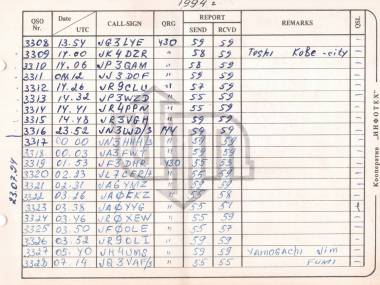 1994 г.
QSO Nr. Date UTC CALL-SIGN QRG REPORT SEND RCVD REMARKS QSL
3308 13.54 JG3LYE 430 59 59
3309 14.00 JK4DZR " 58 59 Toshi Kobe-city
3310 14.06 JP3GAM " 58 59
3311 JJ3DOF " 59 59
3312 14.26 JR9OLU " 57 59
3313 14.32 JP3WZD " 55 59
3314 14.41 JR4PPN " 55 59
3315 14.48 JR3VGH " 59 59
3316 23.52 JN3WLD/3 144 59 59
3317 00.00 " 59 59
3318 00.03 JA3FWT " 59 59
3319 01.53 JF3DHR 430 55 53
3320 02.23 " 55 59
3321 02.31 JA6YMZ " 55 59
3322 03.26 JA0EKZ " 55 58
3323 03.38 JA0XYG " 55 51
3324 03.46 JR0XEW " 55 59
3325 03.50 JF0OLE " 55 57
3326 03.52 JR9OLI " 59 59
3327 05.40 JH4UMS " 59 59 YAMOGACHI Jim
3328 07.14 JQ3VAF/3 " 55 55 FUMI
Кооператив „ИНФОТЕХ"